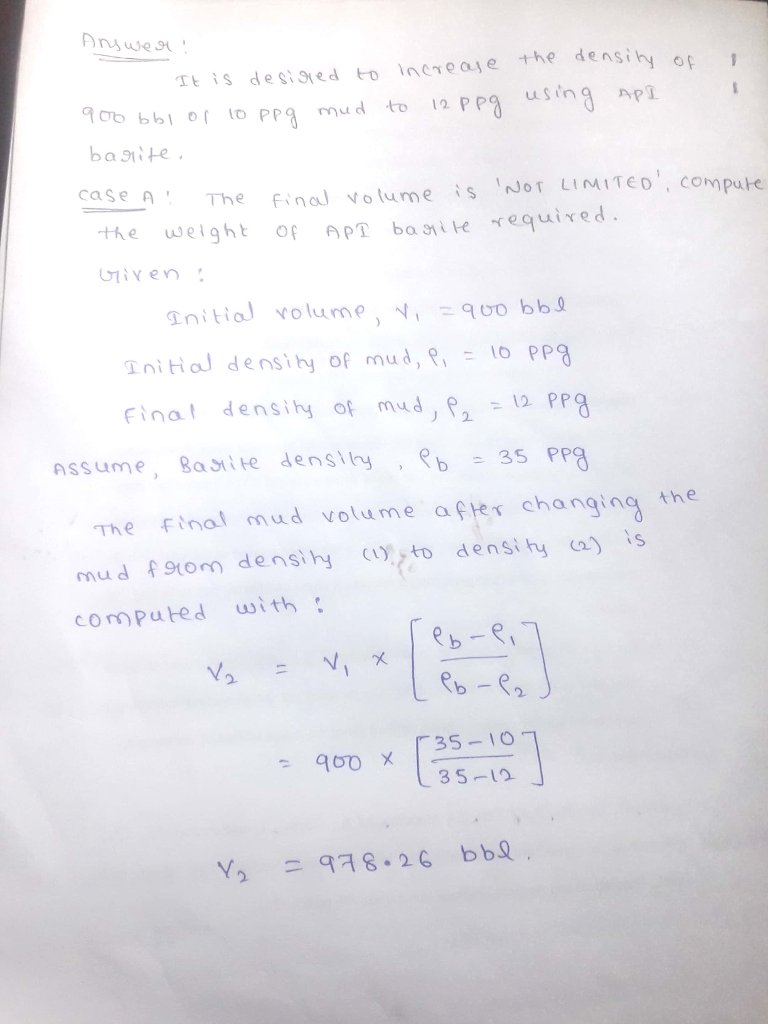 Answer :
It is desired to increase the density of
900 bbl of 10 ppg mud to 12 ppg using API
barite.
case A : The Final volume is 'NOT LIMITED', compute
the weight of API barite required.
Given :
Initial volume, V₁ = 900 bbl
Initial density of mud, ρ₁ = 10 ppg
Final density of mud, ρ₂ = 12 ppg
Assume, Barite density, ρb = 35 ppg
The final mud volume after changing the
mud from density (1) to density (2) is
computed with :
V₂ = V₁ × [ρb-ρ₁ / ρb-ρ₂]
= 900 × [35-10 / 35-12]
V₂ = 978.26 bbl.